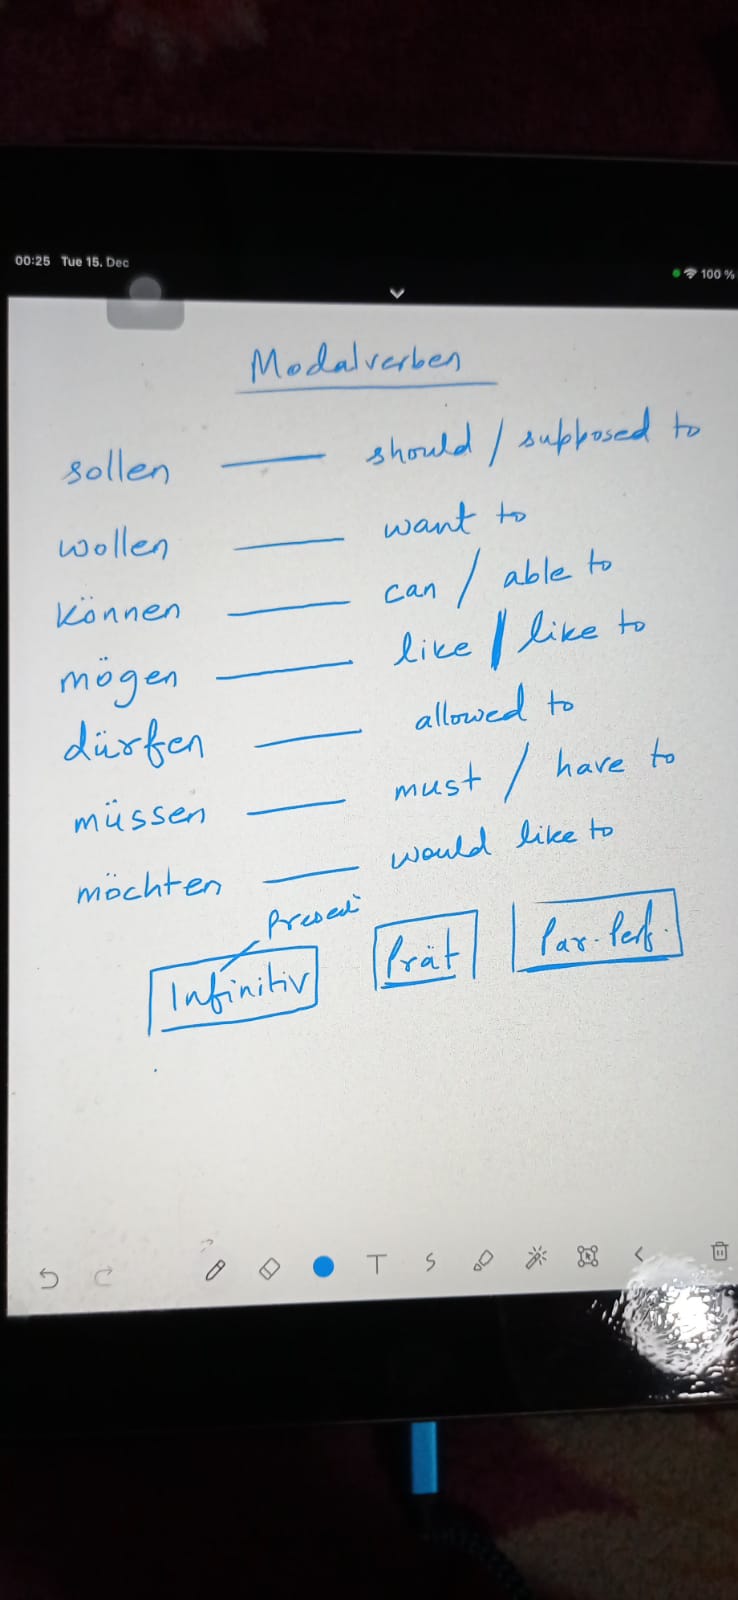 00:25 Tue 15. Dec 100 %
Modalverben
sollen —— should / supposed to
wollen —— want to
können —— can / able to
mögen —— like / like to
dürfen —— allowed to
müssen —— must / have to
möchten —— would like to
Infinitiv Prät Par. Perf.
T S